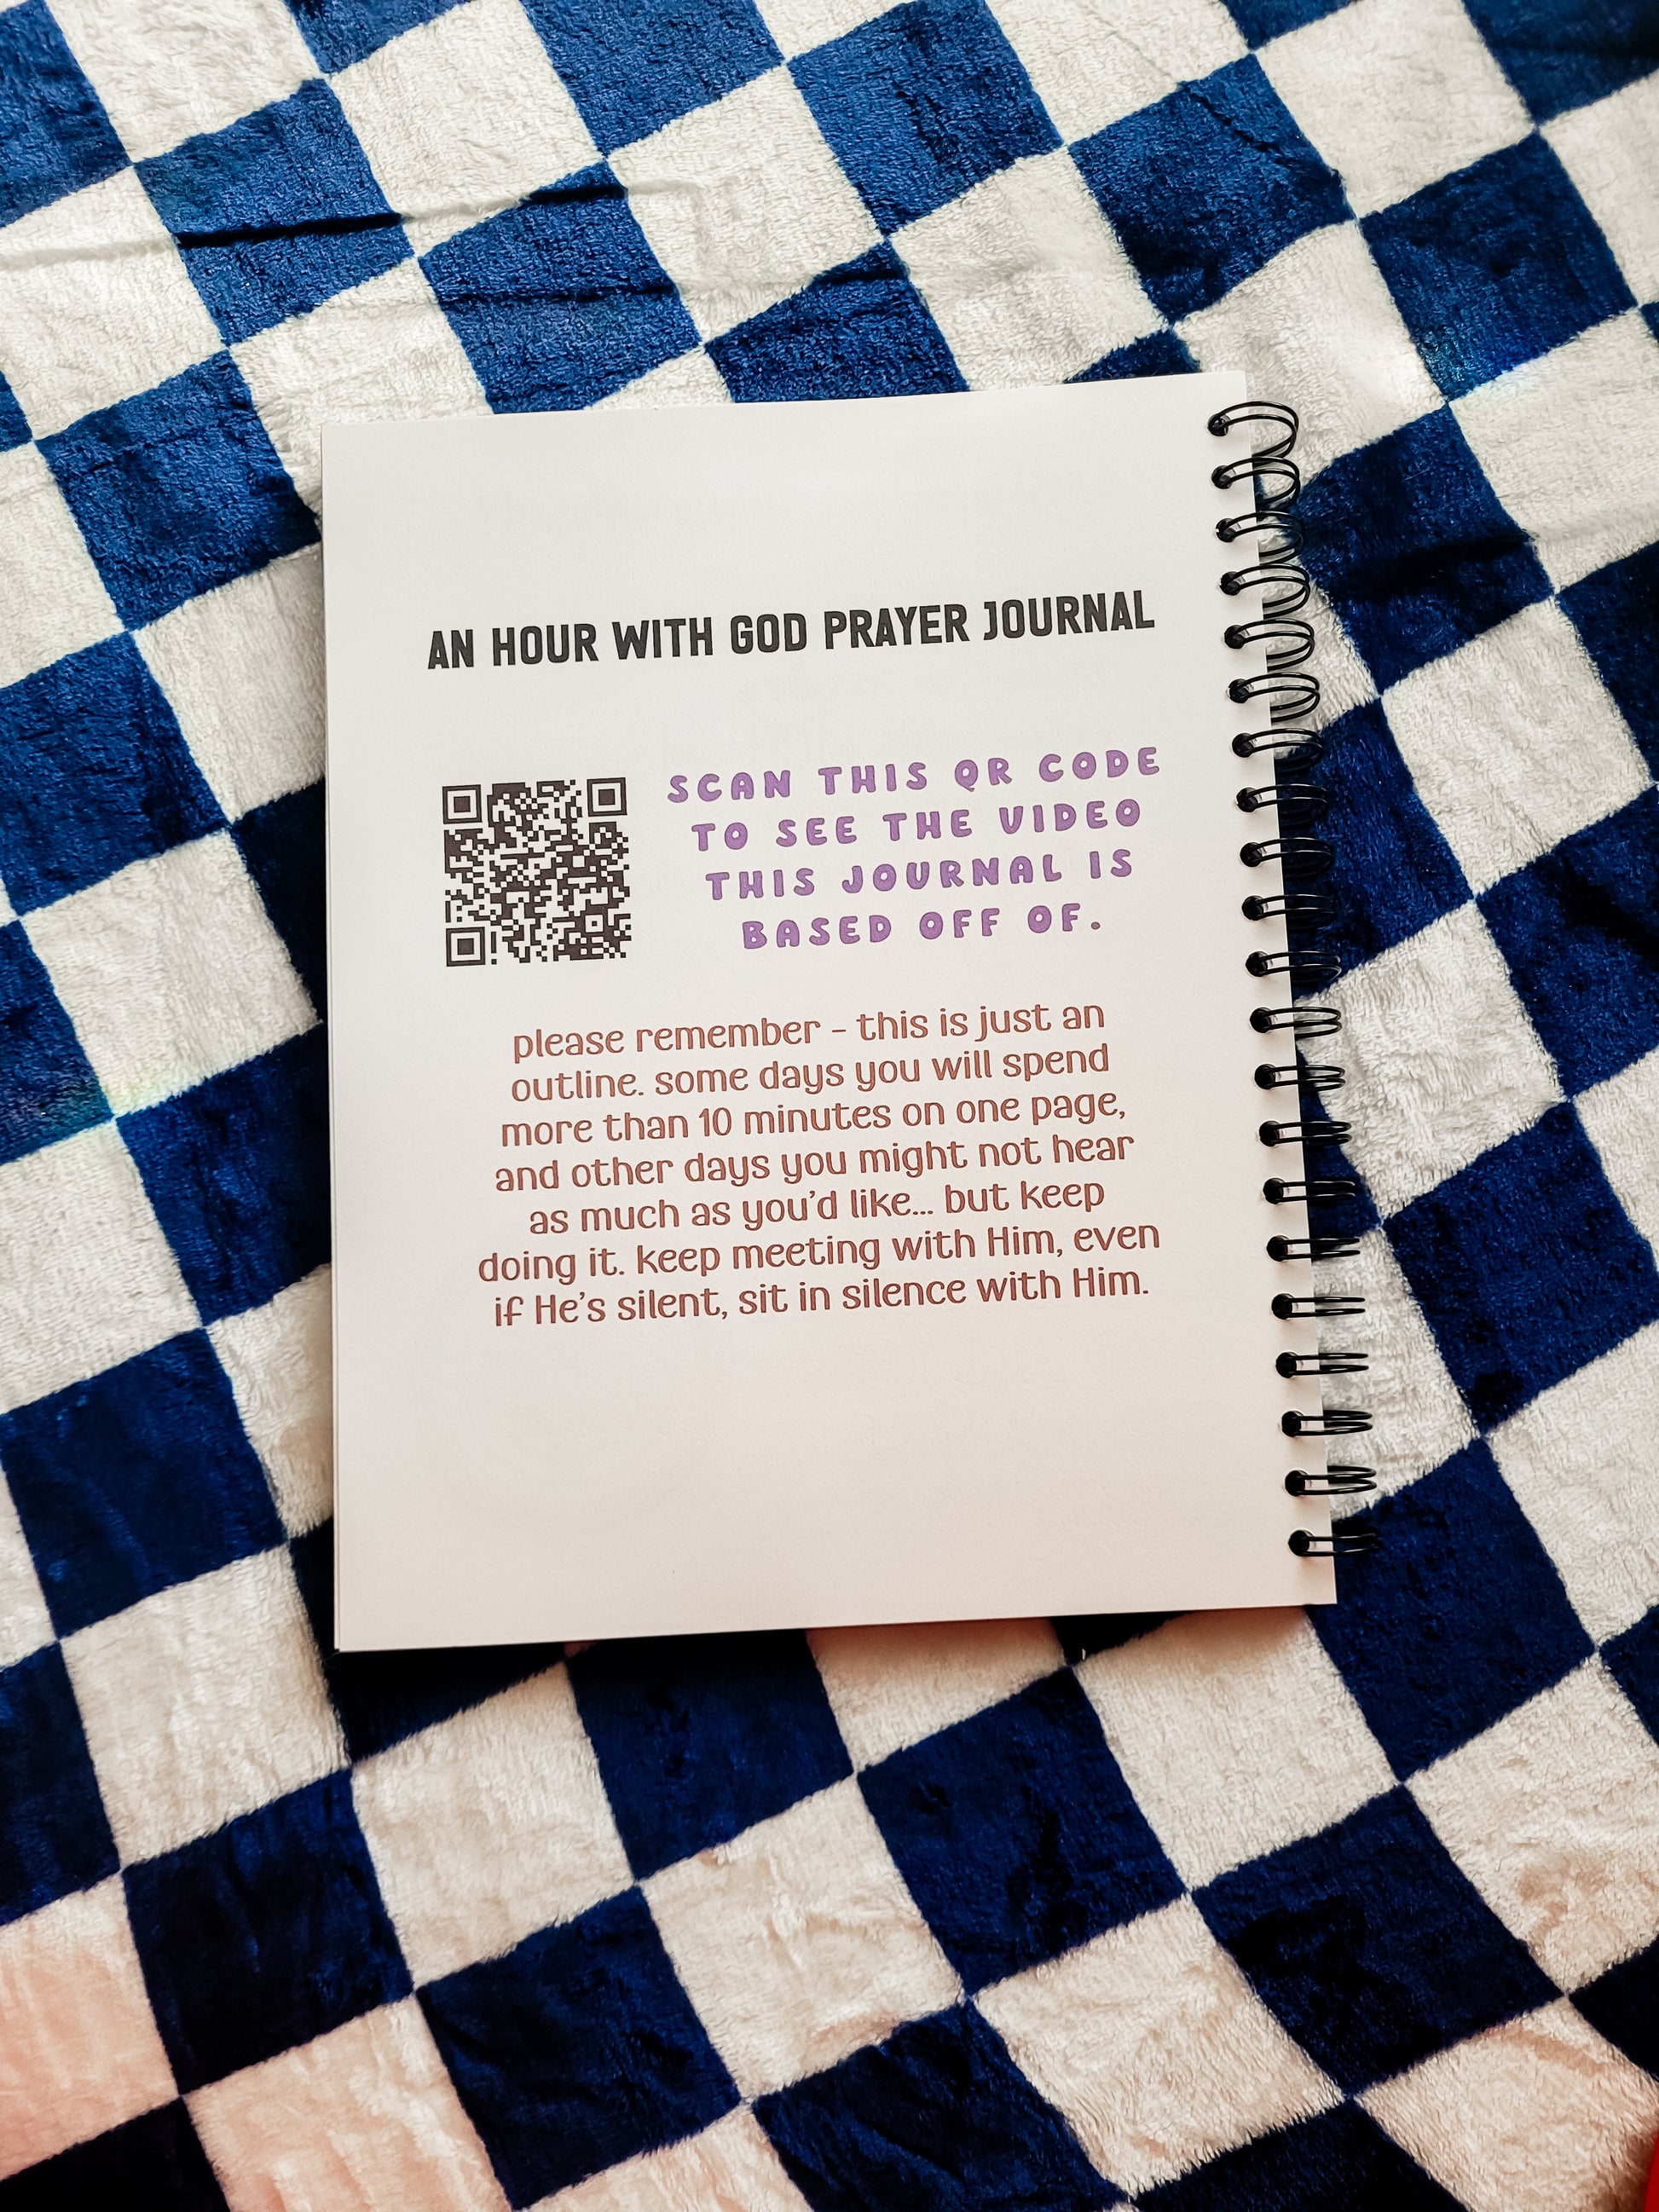 AN HOUR WITH GOD PRAYER JOURNAL
SCAN THIS QR CODE
TO SEE THE VIDEO
THIS JOURNAL IS
BASED OFF OF.
please remember - this is just an
outline. some days you will spend
more than 10 minutes on one page,
and other days you might not hear
as much as you'd like... but keep
doing it. keep meeting with Him, even
if He's silent, sit in silence with Him.